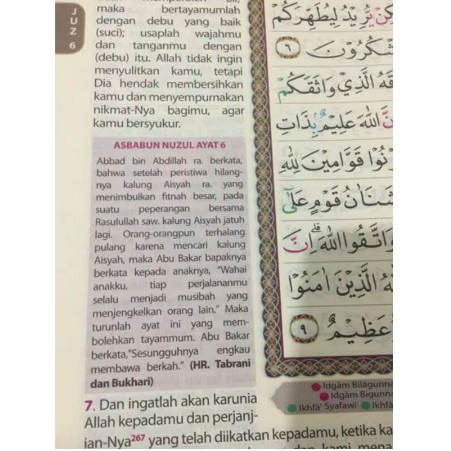 J
U
Z
6
maka bertayamumlah
dengan debu yang baik
(suci); usaplah wajahmu
dan tanganmu dengan
(debu) itu. Allah tidak ingin
menyulitkan kamu, tetapi
Dia hendak membersihkan
kamu dan menyempurnakan
nikmat-Nya bagimu, agar
kamu bersyukur.
ASBABUN NUZUL AYAT 6
Abbad bin Abdillah ra. berkata,
bahwa setelah peristiwa hilang-
nya kalung Aisyah ra. yang
menimbulkan fitnah besar, pada
suatu peperangan bersama
Rasulullah saw. kalung Aisyah jatuh
lagi. Orang-orangpun terhalang
pulang karena mencari kalung
Aisyah, maka Abu Bakar bapaknya
berkata kepada anaknya, "Wahai
anakku, tiap perjalananmu
selalu menjadi musibah yang
menjengkelkan orang lain." Maka
turunlah ayat ini yang mem-
bolehkan tayammum. Abu Bakar
berkata,"Sesungguhnya engkau
membawa berkah." (HR. Tabrani
dan Bukhari)
7. Dan ingatlah akan karunia
Allah kepadamu dan perjanj-
ian-Nya267 yang telah diikatkan kepadamu, ketika ka
يُرِيْدُ لِيُطَهِّرَكُمْ
٦
الَّذِيْ وَاثَقَكُمْ
اللّٰهَ عَلِيْمٌۢ بِذَاتِ
قَوَّامِيْنَ لِلّٰهِ
شَنَاٰنُ قَوْمٍ عَلٰٓى
وَاتَّقُوا اللّٰهَ ۗ اِنَّ
الَّذِيْنَ اٰمَنُوْا
عَظِيْمٌ ٩
Idgām Bilāgunna
Idgām Bigunna
Ikhfā' Syafawi